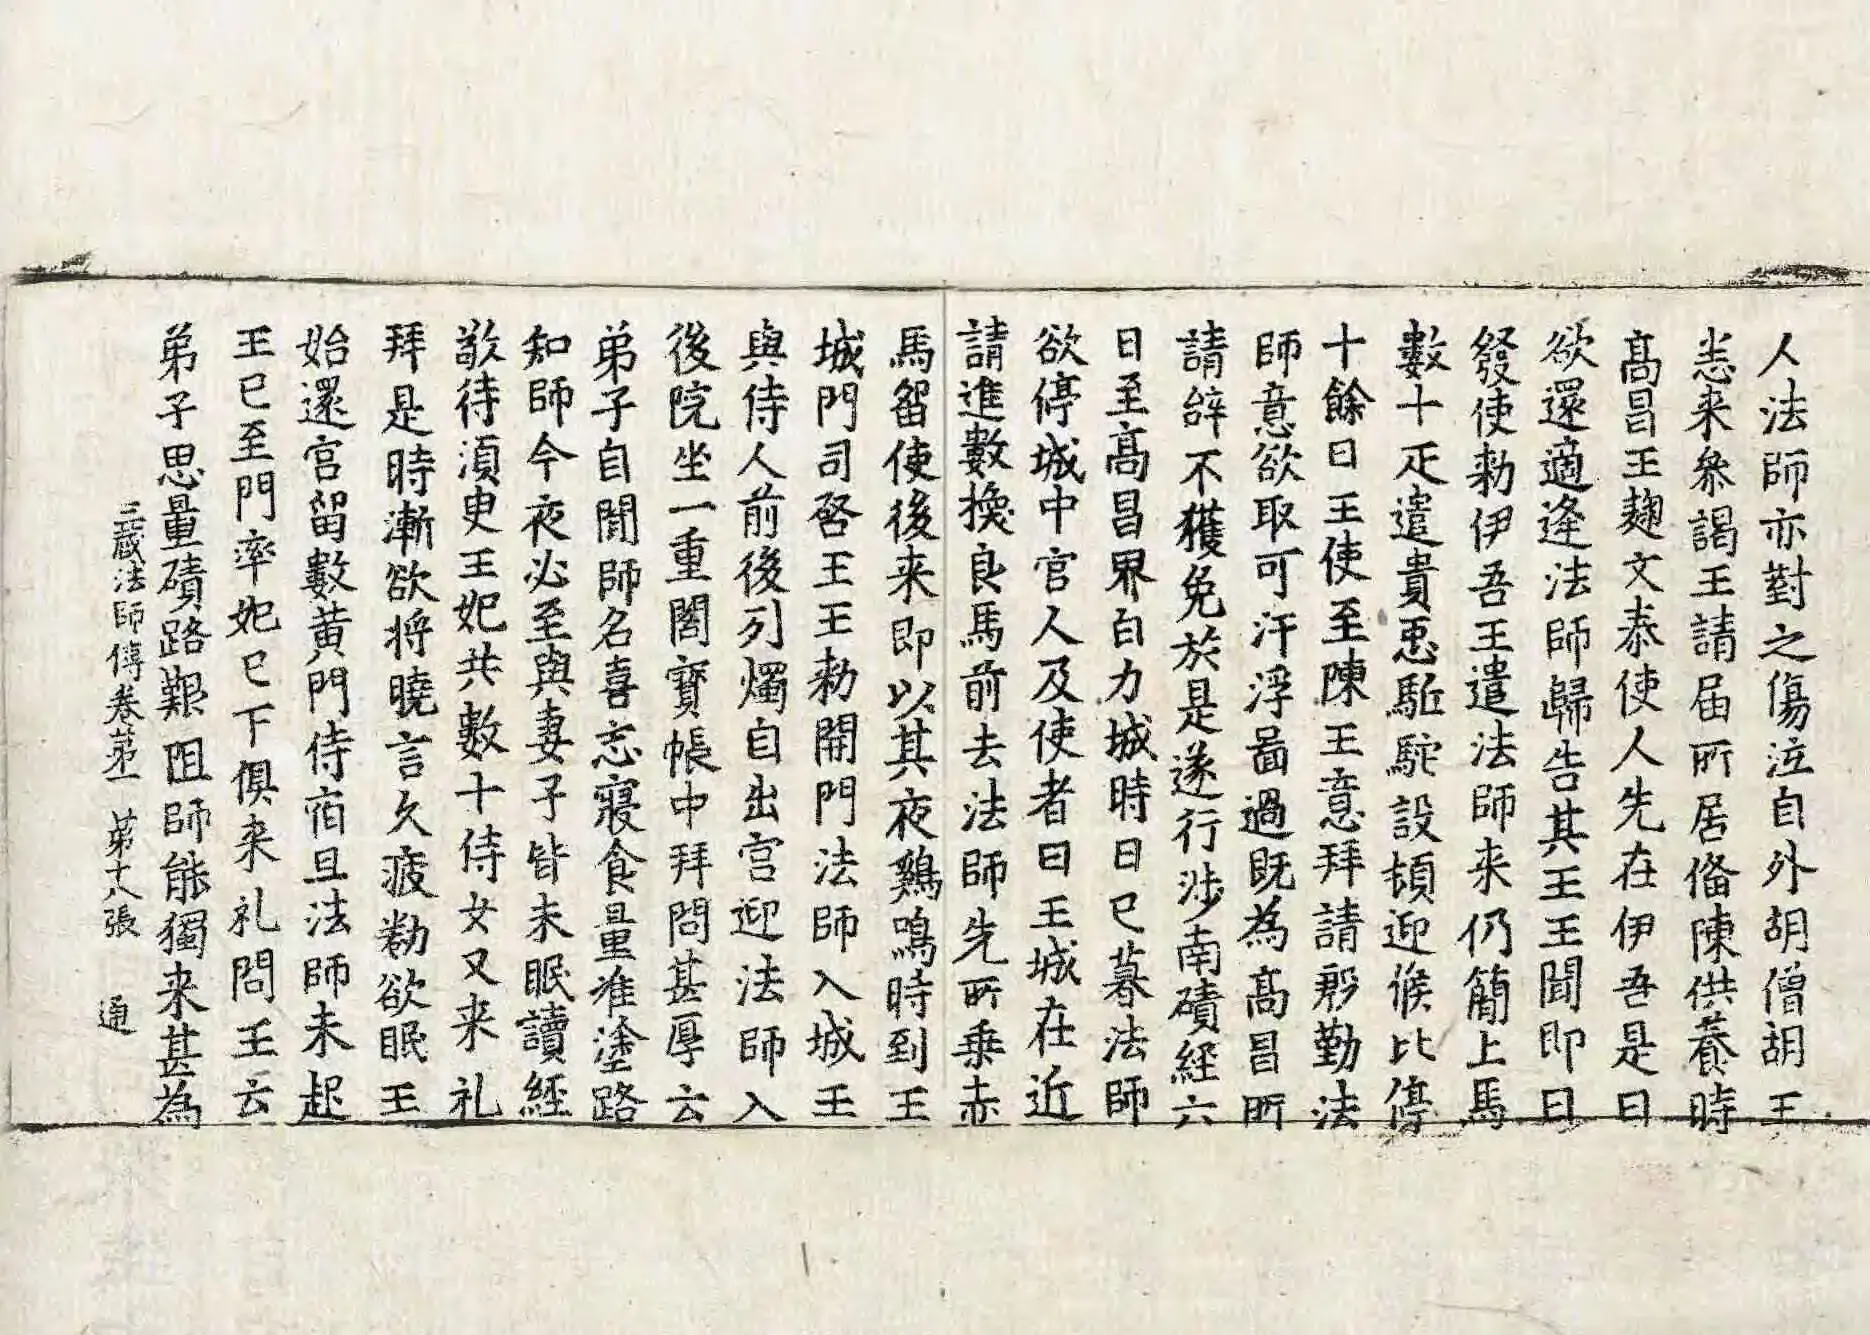 人法師亦對之傷泣自外胡僧胡王
悉来叅謁王請屆所居俻陳供養時
髙昌王麹文泰使人先在伊吾是日
欲還適逢法師歸告其王王聞即日
發使勑伊吾王遣法師来仍簡上馬
數十疋遣貴臣駈駝設頓迎候比停
十餘日王使至陳王意拜請慇勤法
師意欲取可汗浮啚過既為髙昌所
請辝不獲免於是遂行涉南磧經六
日至髙昌界白力城時日已暮法師
欲停城中官人及使者曰王城在近
請進數換良馬前去法師先所乗赤
馬留使後来即以其夜鷄鳴時到王
城門司啓王王勑開門法師入城王
與侍人前後列燭自出宫迎法師入
後院坐一重閣寳帳中拜問甚厚云
弟子自聞師名喜忘寢食量准塗路
知師今夜必至與妻子皆未眠讀經
敬待湏㬰王妃共數十侍女又来礼
拜是時漸欲將曉言久疲勌欲眠王
始還宫留數黄門侍宿旦法師未起
王已至門率妃已下俱来礼問王云
弟子思量磧路艱阻師能獨来甚為
三蔵法師傳卷苐一 苐十八張 通